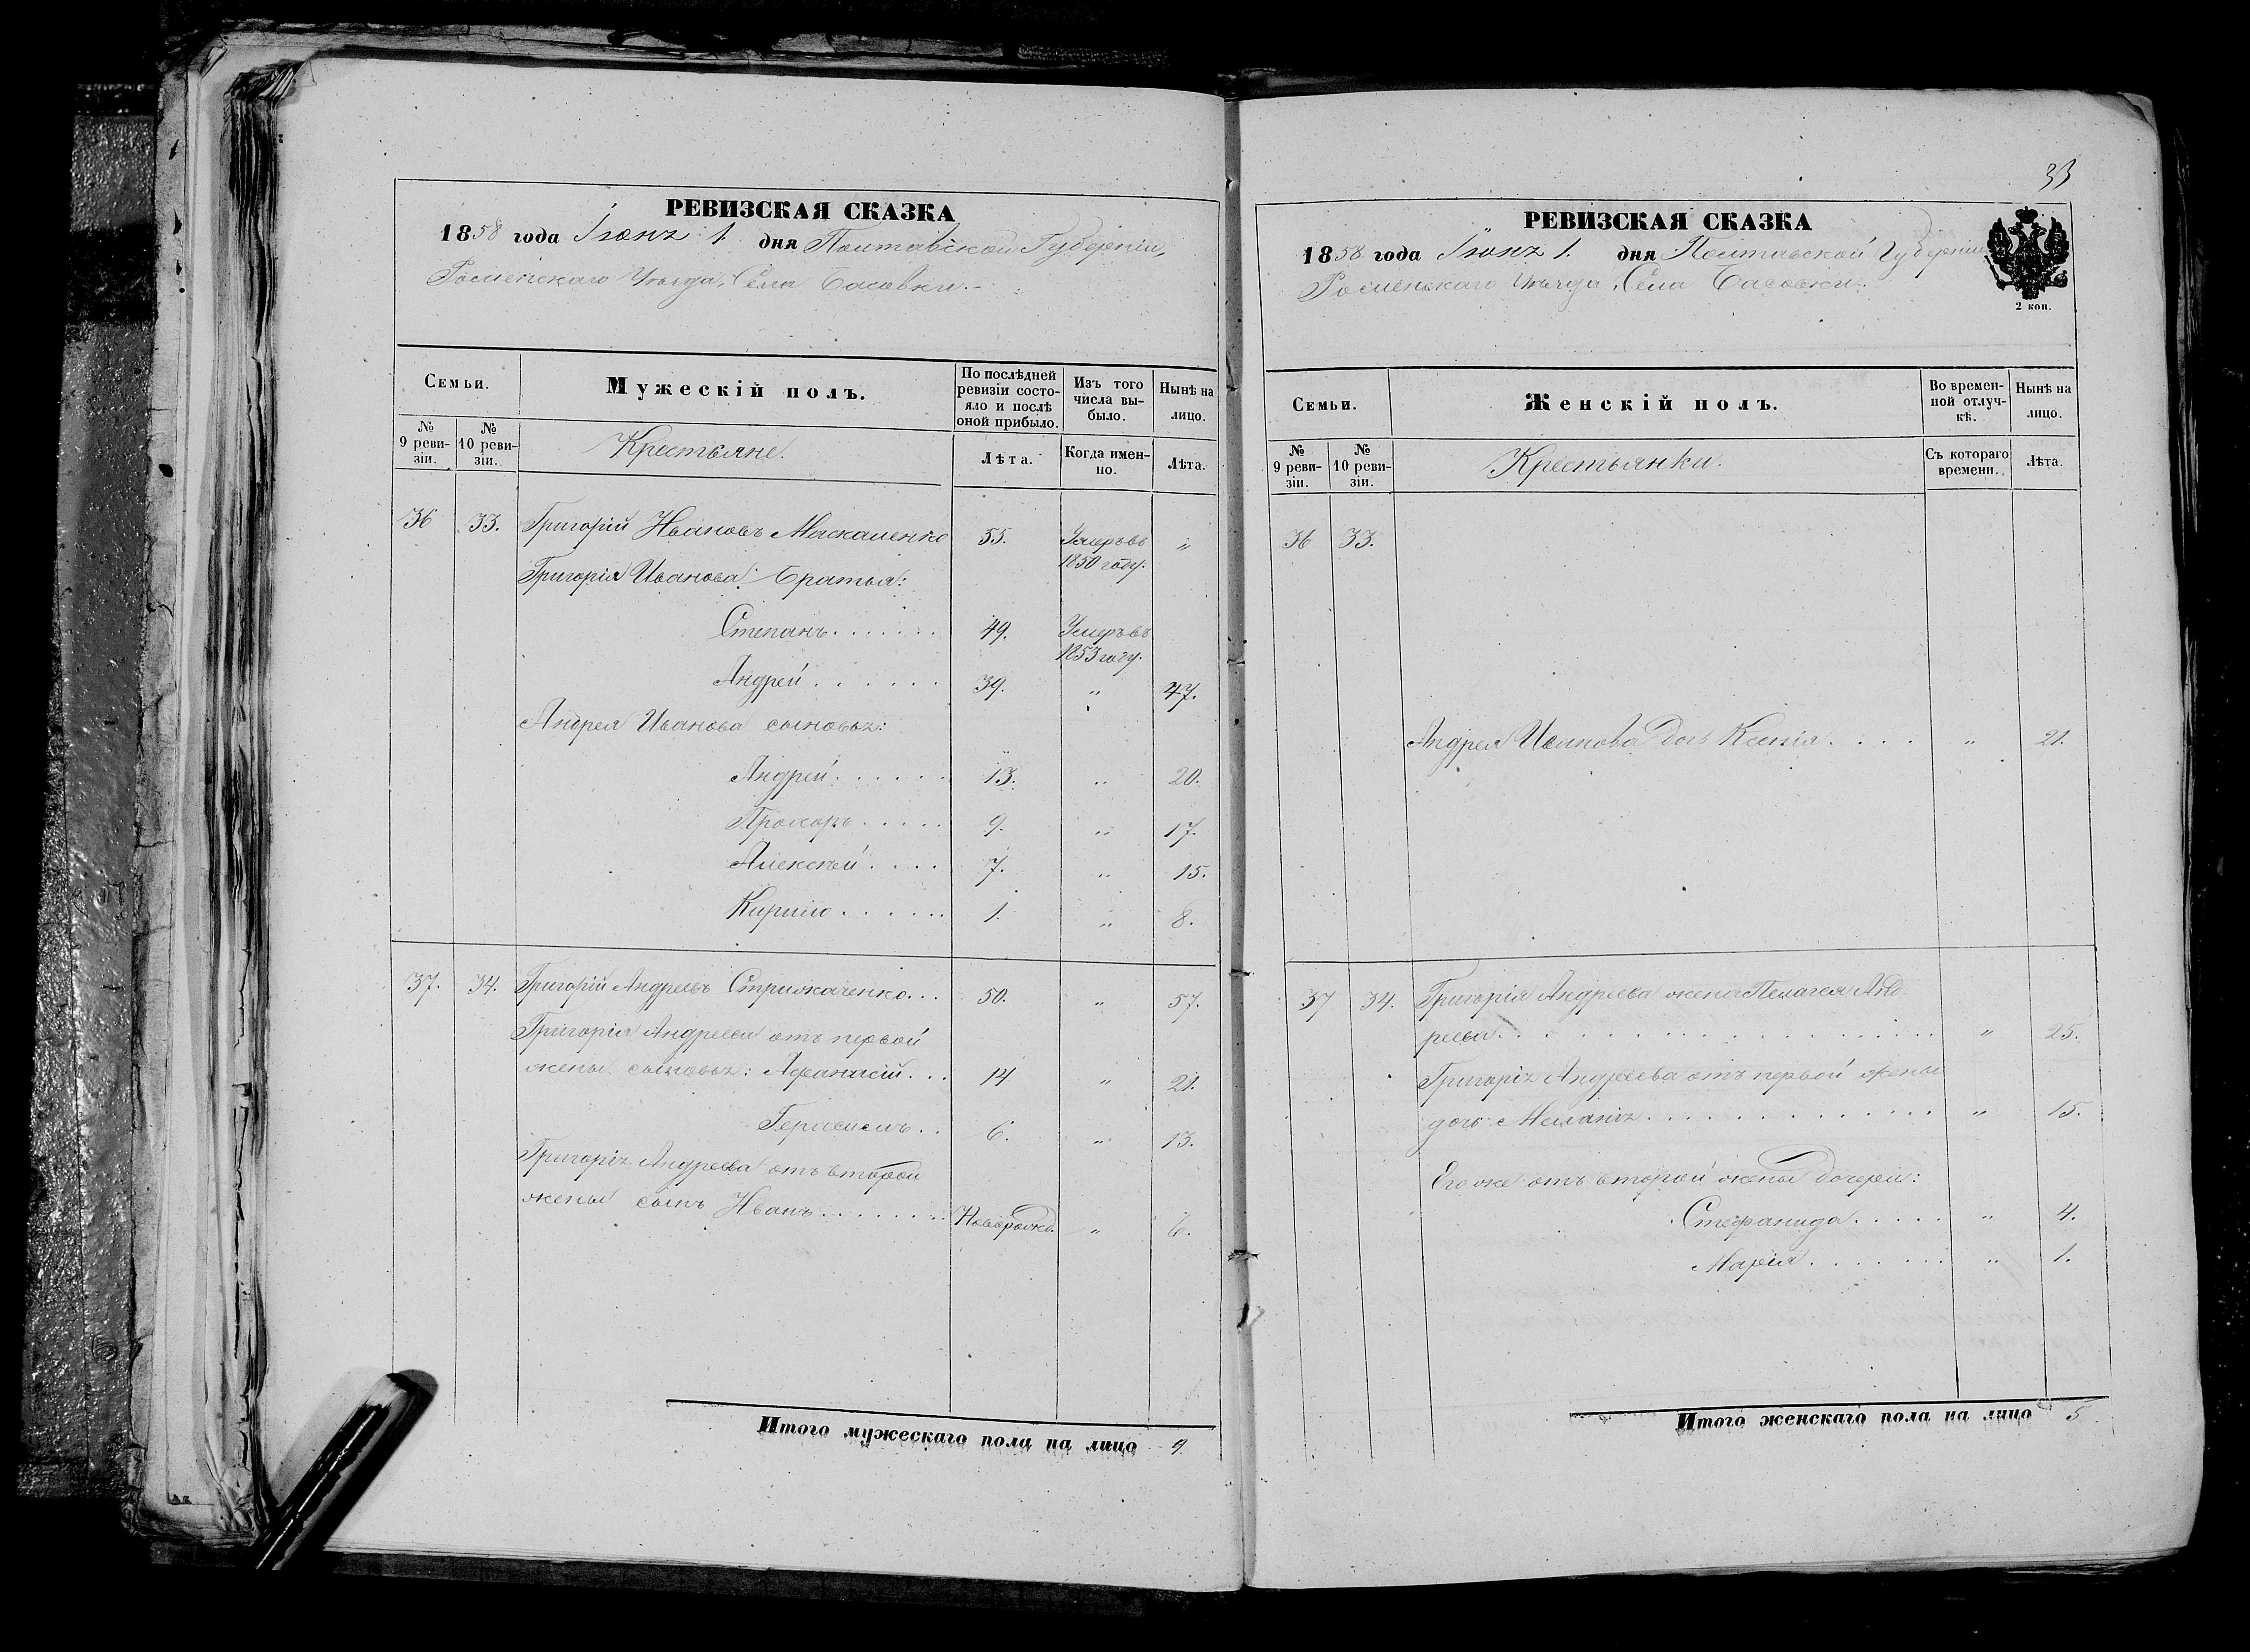 РЕВИЗСКАЯ СКАЗКА
1858 года Іюня 1. дня Полтавской Губерніи,
Роменскаго Уѣзда, Села Басовки.
Семьи.
Мужескій полъ.
По послѣдней ревизіи состояло и послѣ оной прибыло.
Изъ того числа выбыло.
Нынѣ на лицо.
№ 9 ревизіи.
№ 10 ревизіи.
Крестьяне.
Лѣта.
Когда именно.
Лѣта.
36 33. Григорій Ивановъ Маскаленко 55. Умеръ въ 1850 году. "
Григорія Иванова братья:
Степанъ . . . . . . 49. Умеръ въ 1853 году.
Андрей . . . . . . 39. " 47.
Андрея Иванова сыновья:
Андрей . . . . . . 13. " 20.
Прохоръ . . . . . 9. " 17.
Алексѣй . . . . 7. " 15.
Кирило . . . . . . 1. " 8.
37. 34. Григорій Андреевъ Стрижаченко . . . 50. " 57.
Григорія Андреева отъ первой
жены сыновья: Афанасій . . . 14 " 21.
Герасимъ . . 6. " 13.
Григорія Андреева отъ второй
жены сынъ Иванъ . . . . . . . Новорожд. " 6.
Итого мужескаго пола на лицо 9
33
РЕВИЗСКАЯ СКАЗКА
1858 года Іюня 1. дня Полтавской Губерніи
Роменскаго Уѣзда, Села Басовки.
2 коп.
Семьи.
Женскій полъ.
Во временной отлучкѣ.
Нынѣ на лицо.
№ 9 ревизіи.
№ 10 ревизіи.
Крестьянки.
Съ котораго времени.
Лѣта.
36 33.
Андрея Иванова дочь Ксенія . . . . " 21.
37 34. Григорія Андреева жена Пелагея Анд-
реева . . . . . . . . . . . . . . . . " 25.
Григорія Андреева отъ первой жены
дочь Меланія . . . . . . . . . . . . . " 15.
Его же отъ второй жены дочери:
Стефанида . . . . . " 4.
Марія . . . . . . . " 1.
Итого женскаго пола на лицо 5